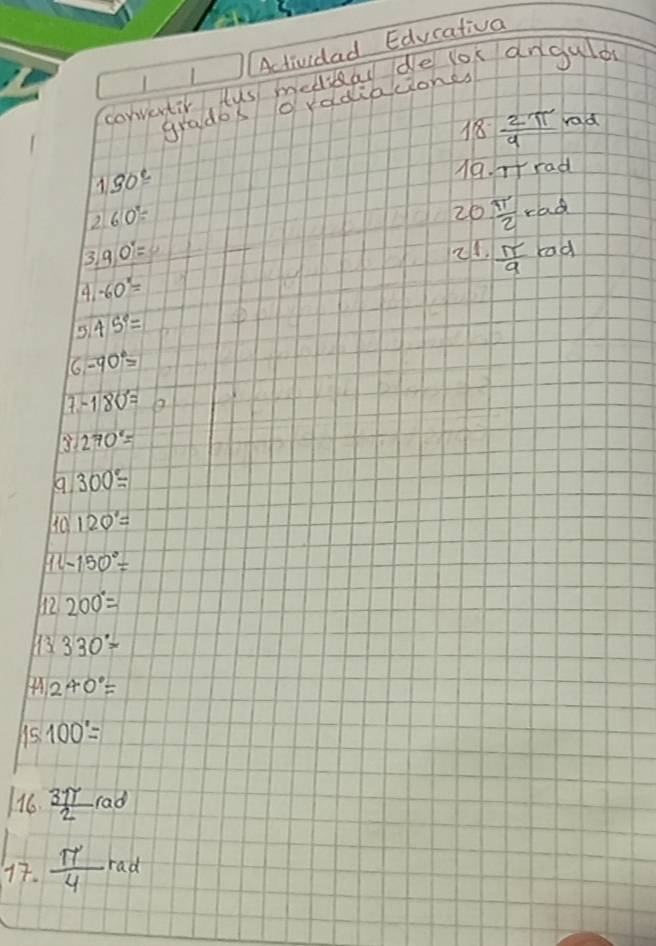 Actividad Educativa
convertir, tus medidas de los angulos
grados o radiaciones
1.90°=
2.60°=
3.90°=
4.-60°=
5.45°=
6.-90°=
7.-180°=
8.270°=
9.300°=
10.120°=
11.-150°=
12.200°=
13.330°=
14.240°=
15.100°=
16. 3π/2 rad
17. π/4 rad
18. 2π/9 rad
19. π rad
20. π/2 rad
21. π/9 rad